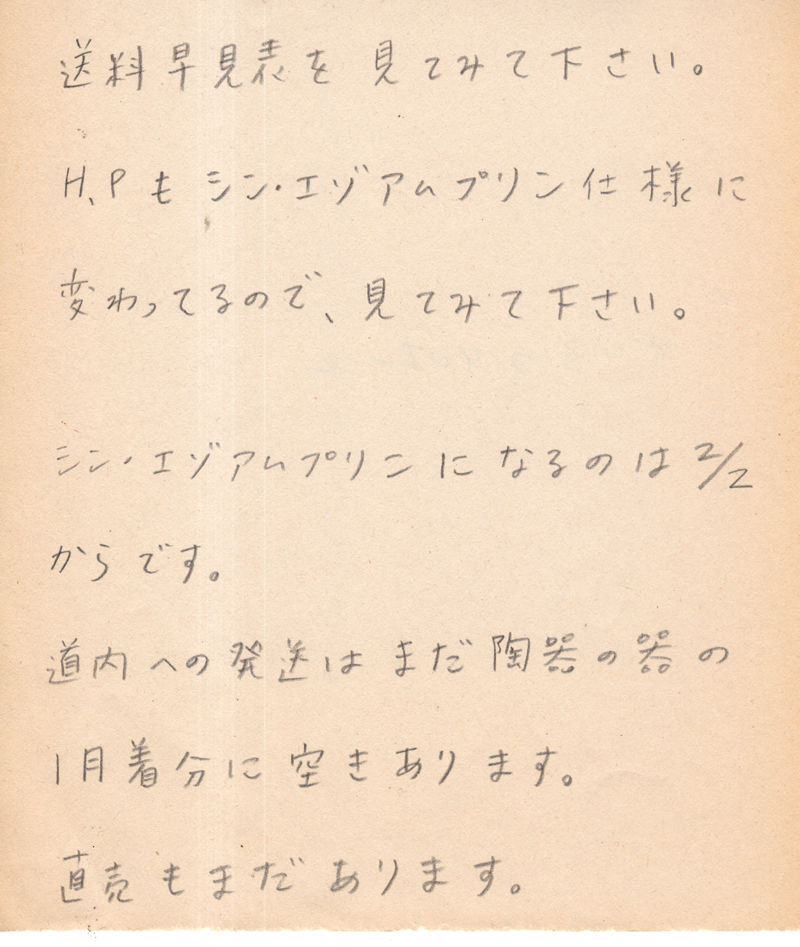 送料早見表を見てみて下さい。
H.Pもシン・エゾアムプリン仕様に
変わってるので、見てみて下さい。
シン・エゾアムプリンになるのは2/2
からです。
道内への発送はまだ陶器の器の
1月着分に空きあります。
直売もまだあります。